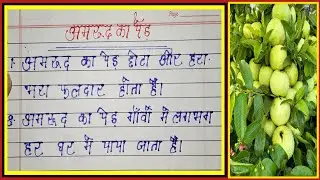 Page
अमरूद का पेड़
1. अमरूद का पेड़ छोटा और हरा-
भरा फलदार होता है।
2. अमरूद का पेड़ गाँवों में लगभग
हर घर में पाया जाता है।